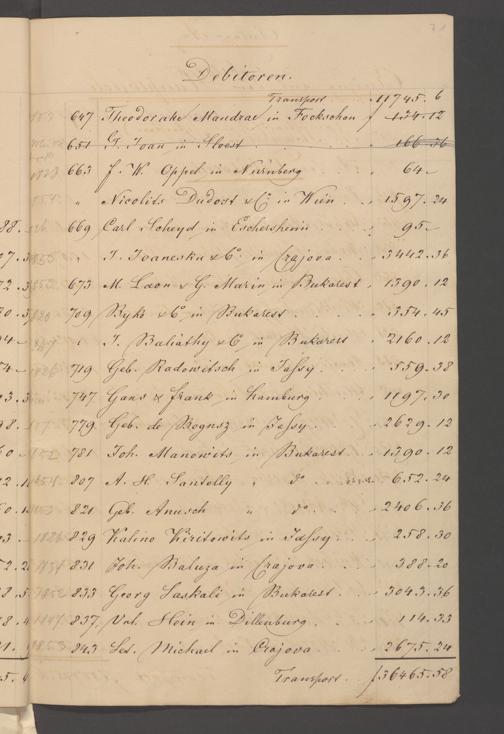 Debitoren.
Transport 11745. 6
647 Theodorake Mandrea in Fockschan f 134. 12
651 G. Joan in Ploest 166. 36
663 J. W. Oppel in Nürnberg " 64 -
" Nicolits Dudost & Co in Wien " 1597. 24
669 Carl Scheyd in Eschersheim " 95 -
" J. Joanesku & Co. in Crajova " 3442. 36
673 M. Laon & G. Marin in Bukarest " 1390. 12
709 Byks & Co in Bukarest " 354. 45
" J. Baliathy & Co in Bukarest " 2160. 12
719 Geb. Radowitsch in Jassy " 559. 38
747 Gans & Frank in Hamburg " 1197. 30
779 Geb. de in Jassy " 2629. 12
781 Joh. Manowits in Bukarest " 1390. 12
807 A. H. Santolly " do " 652. 24
821 Geb. Anusch " do " 2406. 36
829 Kalino Kiritowits in Jassy " 258. 30
831 Joh. Baluza in Crajova " 388. 20
833 Georg Saskali in Bukarest " 3043. 36
837 Stein in Dillenburg " 114. 33
843 Michael in Crajova " 2675. 24
Transport f 36465. 58